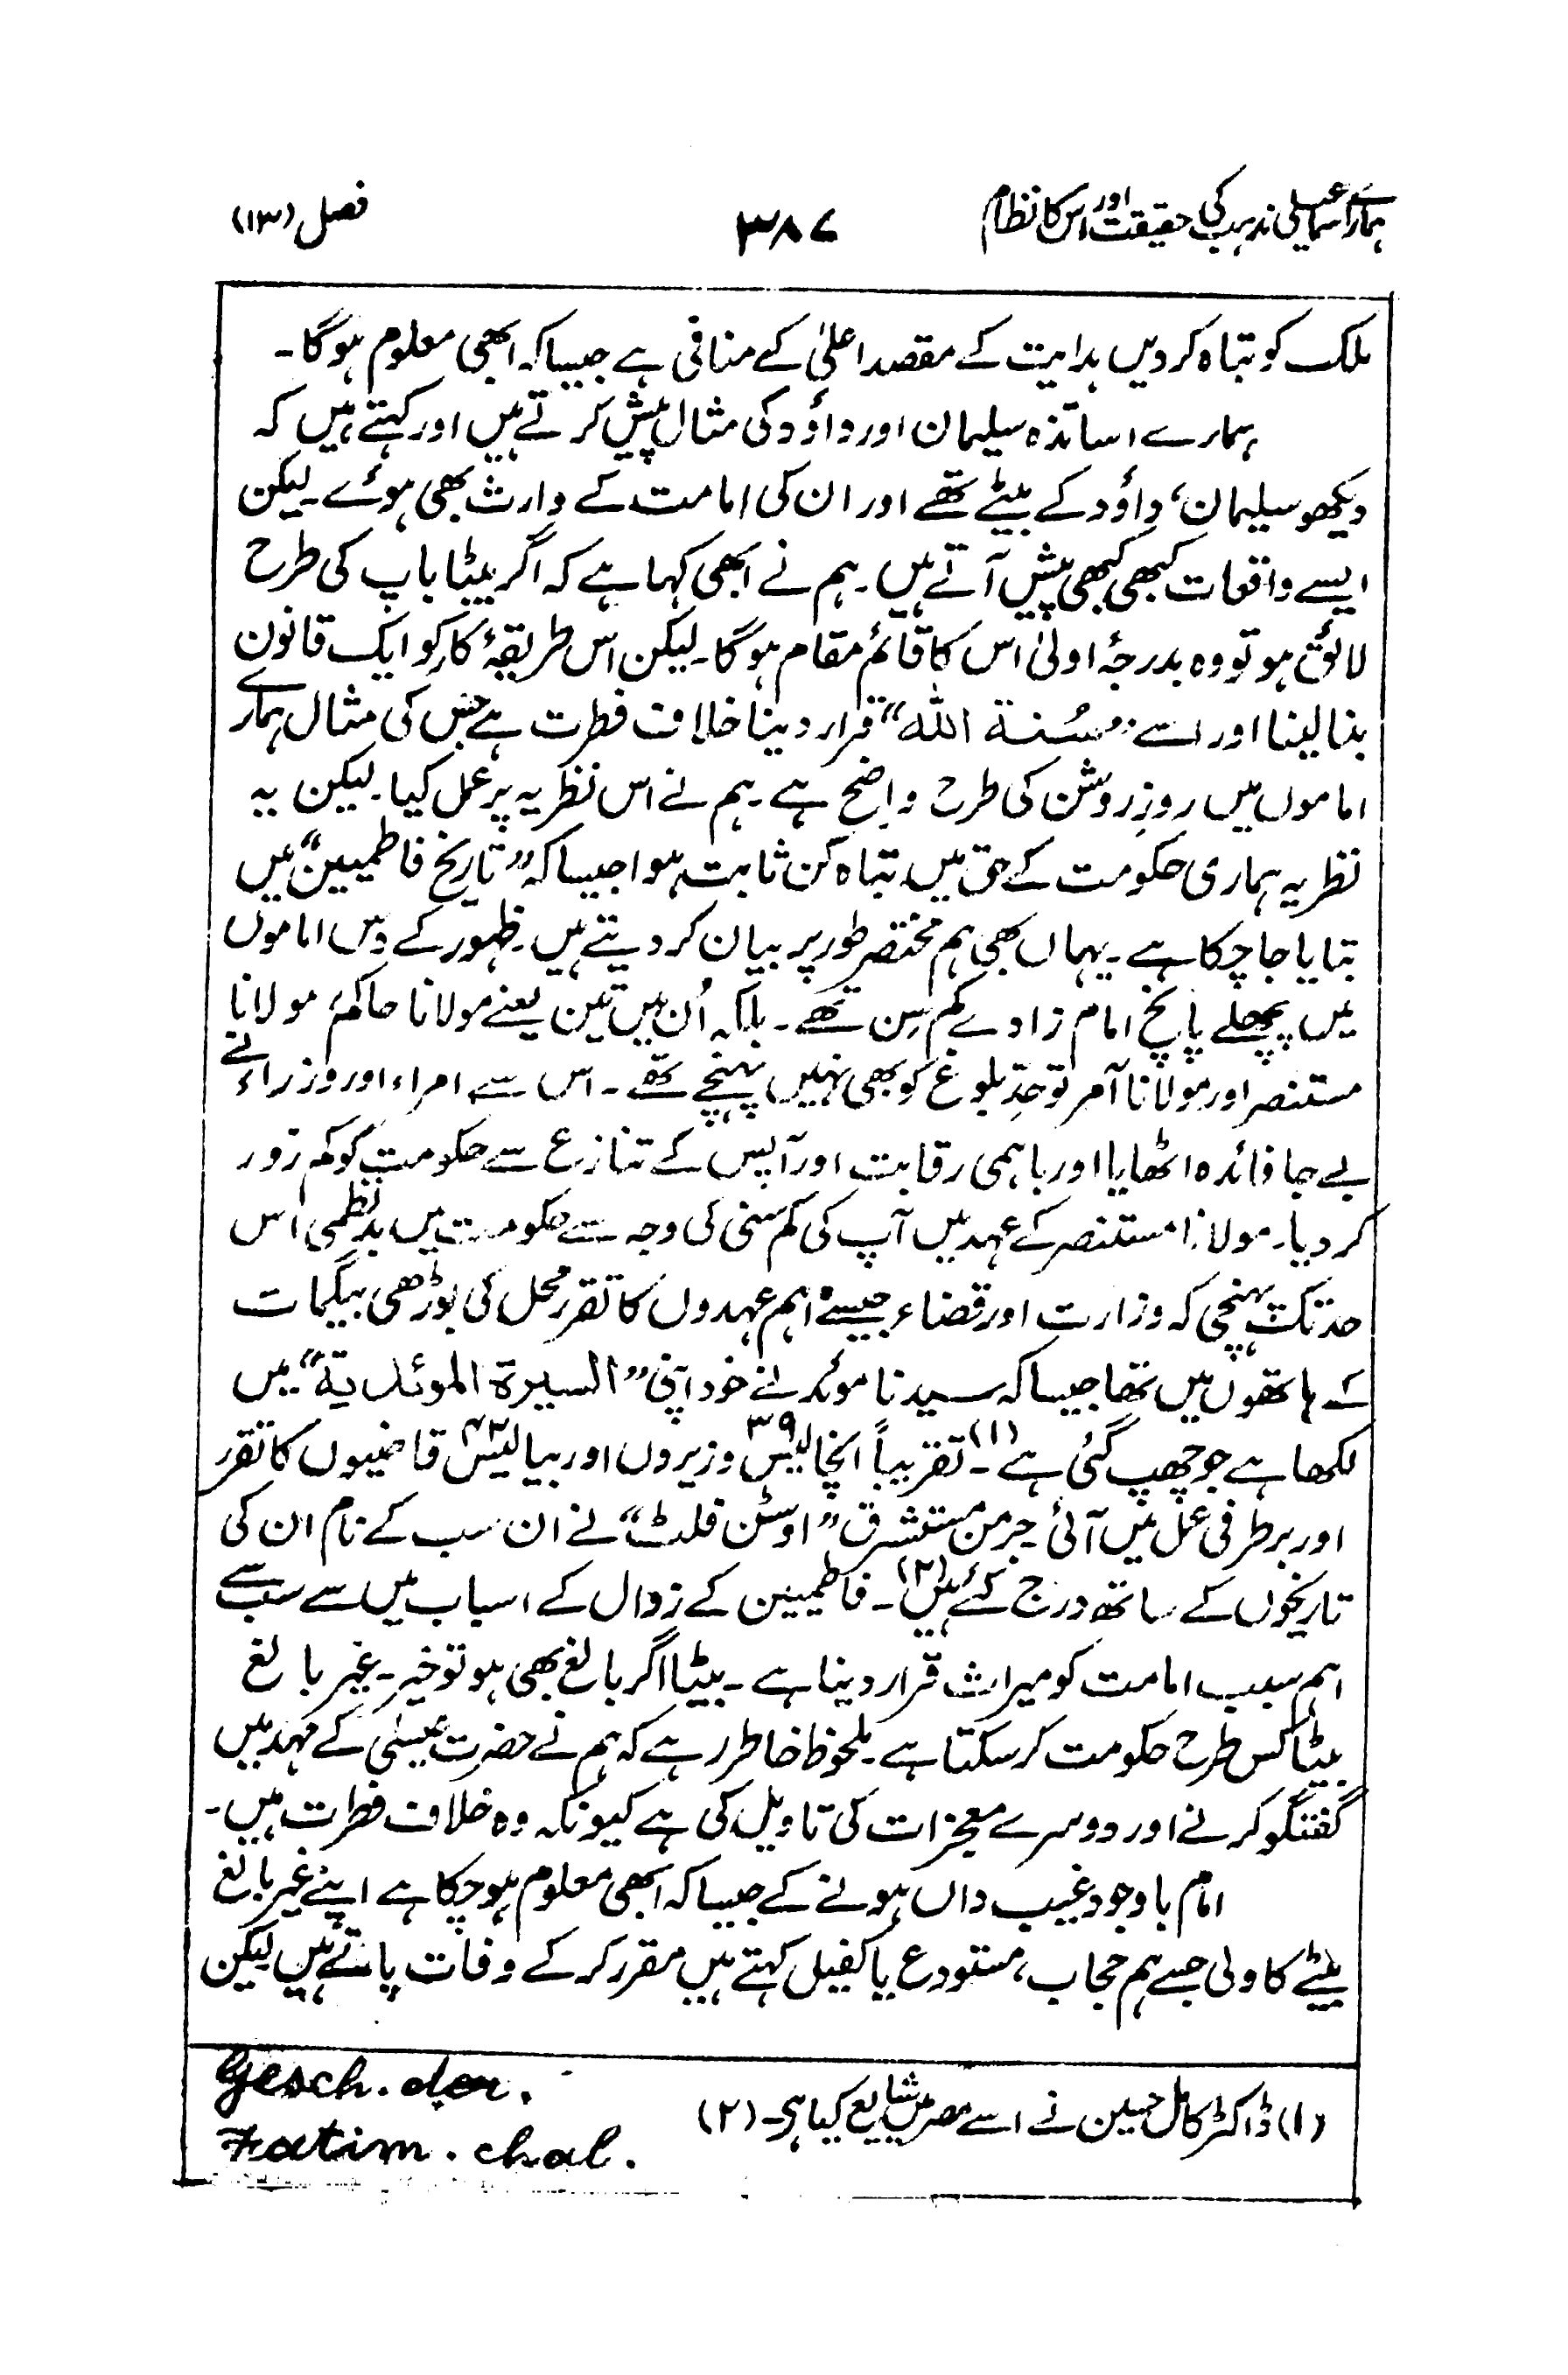 ہمارے اسماعیلی مذہب کی حقیقت اور اس کا نظام
۳۸۷
فصل (۱۳)
ملک کو تباہ کر دیں ہدایت کے مقصد اعلیٰ کے منافی ہے جیسا کہ ابھی معلوم ہوگا۔
ہمارے اساتذہ سلیمان اور داؤد کی مثال پیش کرتے ہیں اور کہتے ہیں کہ
دیکھو سلیمان، داؤد کے بیٹے تھے اور ان کی امامت کے وارث بھی ہوئے۔ لیکن
ایسے واقعات کبھی کبھی پیش آتے ہیں۔ ہم نے ابھی کہا ہے کہ اگر بیٹا باپ کی طرح
لائق ہو تو وہ بدرجۂ اولیٰ اس کا قائم مقام ہوگا۔ لیکن اس طریقۂ کار کو ایک قانون
بنا لینا اور اسے "سُنۃ اللہ" قرار دینا خلاف فطرت ہے جس کی مثال ہمارے
اماموں میں روزِ روشن کی طرح واضح ہے۔ ہم نے اس نظریہ پر عمل کیا۔ لیکن یہ
نظریہ ہماری حکومت کے حق میں تباہ کن ثابت ہوا جیسا کہ "تاریخ فاطمیین" میں
بتایا جا چکا ہے۔ یہاں بھی ہم مختصر طور پر بیان کر دیتے ہیں۔ ظہور کے دس اماموں
میں پچھلے پانچ امام زادے کم سِن تھے۔ بلکہ اُن میں تین یعنے مولانا حاکم، مولانا
مستنصر اور مولانا آمر تو حدِّ بلوغ کو بھی نہیں پہنچے تھے۔ اس سے امراء اور وزراء نے
بے جا فائدہ اٹھایا اور باہمی رقابت اور آپس کے تنازع سے حکومت کو کمزور
کر دیا۔ مولانا مستنصر کے عہد میں آپ کی کم سنی کی وجہ سے حکومت میں بد نظمی اس
حد تک پہنچی کہ وزارت اور قضاء جیسے اہم عہدوں کا تقرر محل کی بوڑھی بیگمات
کے ہاتھوں میں تھا جیسا کہ سیدنا موئد نے خود اپنی "السیرۃ الموئدیۃ" میں
لکھا ہے جو چھپ گئی ہے (۱)۔ تقریباً انچالیس ۳۹ وزیروں اور بیالیس ۴۲ قاضیوں کا تقرر
اور برطرفی عمل میں آئی جرمن مستشرق "اوسٹن فلٹ" نے ان سب کے نام ان کی
تاریخوں کے ساتھ درج کئے ہیں (۲)۔ فاطمیین کے زوال کے اسباب میں سے سب سے
اہم سبب امامت کو میراث قرار دینا ہے۔ بیٹا اگر بالغ بھی ہو تو خیر۔ غیر بالغ
بیٹا کس طرح حکومت کر سکتا ہے۔ ملحوظ خاطر رہے کہ ہم نے حضرت عیسیٰ کے مہد میں
گفتگو کرنے اور دوسرے معجزات کی تاویل کی ہے کیونکہ وہ خلاف فطرت ہیں۔
امام باوجود غیب داں ہونے کے جیسا کہ ابھی معلوم ہو چکا ہے اپنے غیر بالغ
بیٹے کا ولی جسے ہم حجاب، مستودع یا کفیل کہتے ہیں مقرر کر کے وفات پاتے ہیں لیکن
(۱) ڈاکٹر کامل حسین نے اسے مصر میں شایع کیا ہی۔ (۲) Gesch. der.
Fatim. chal.